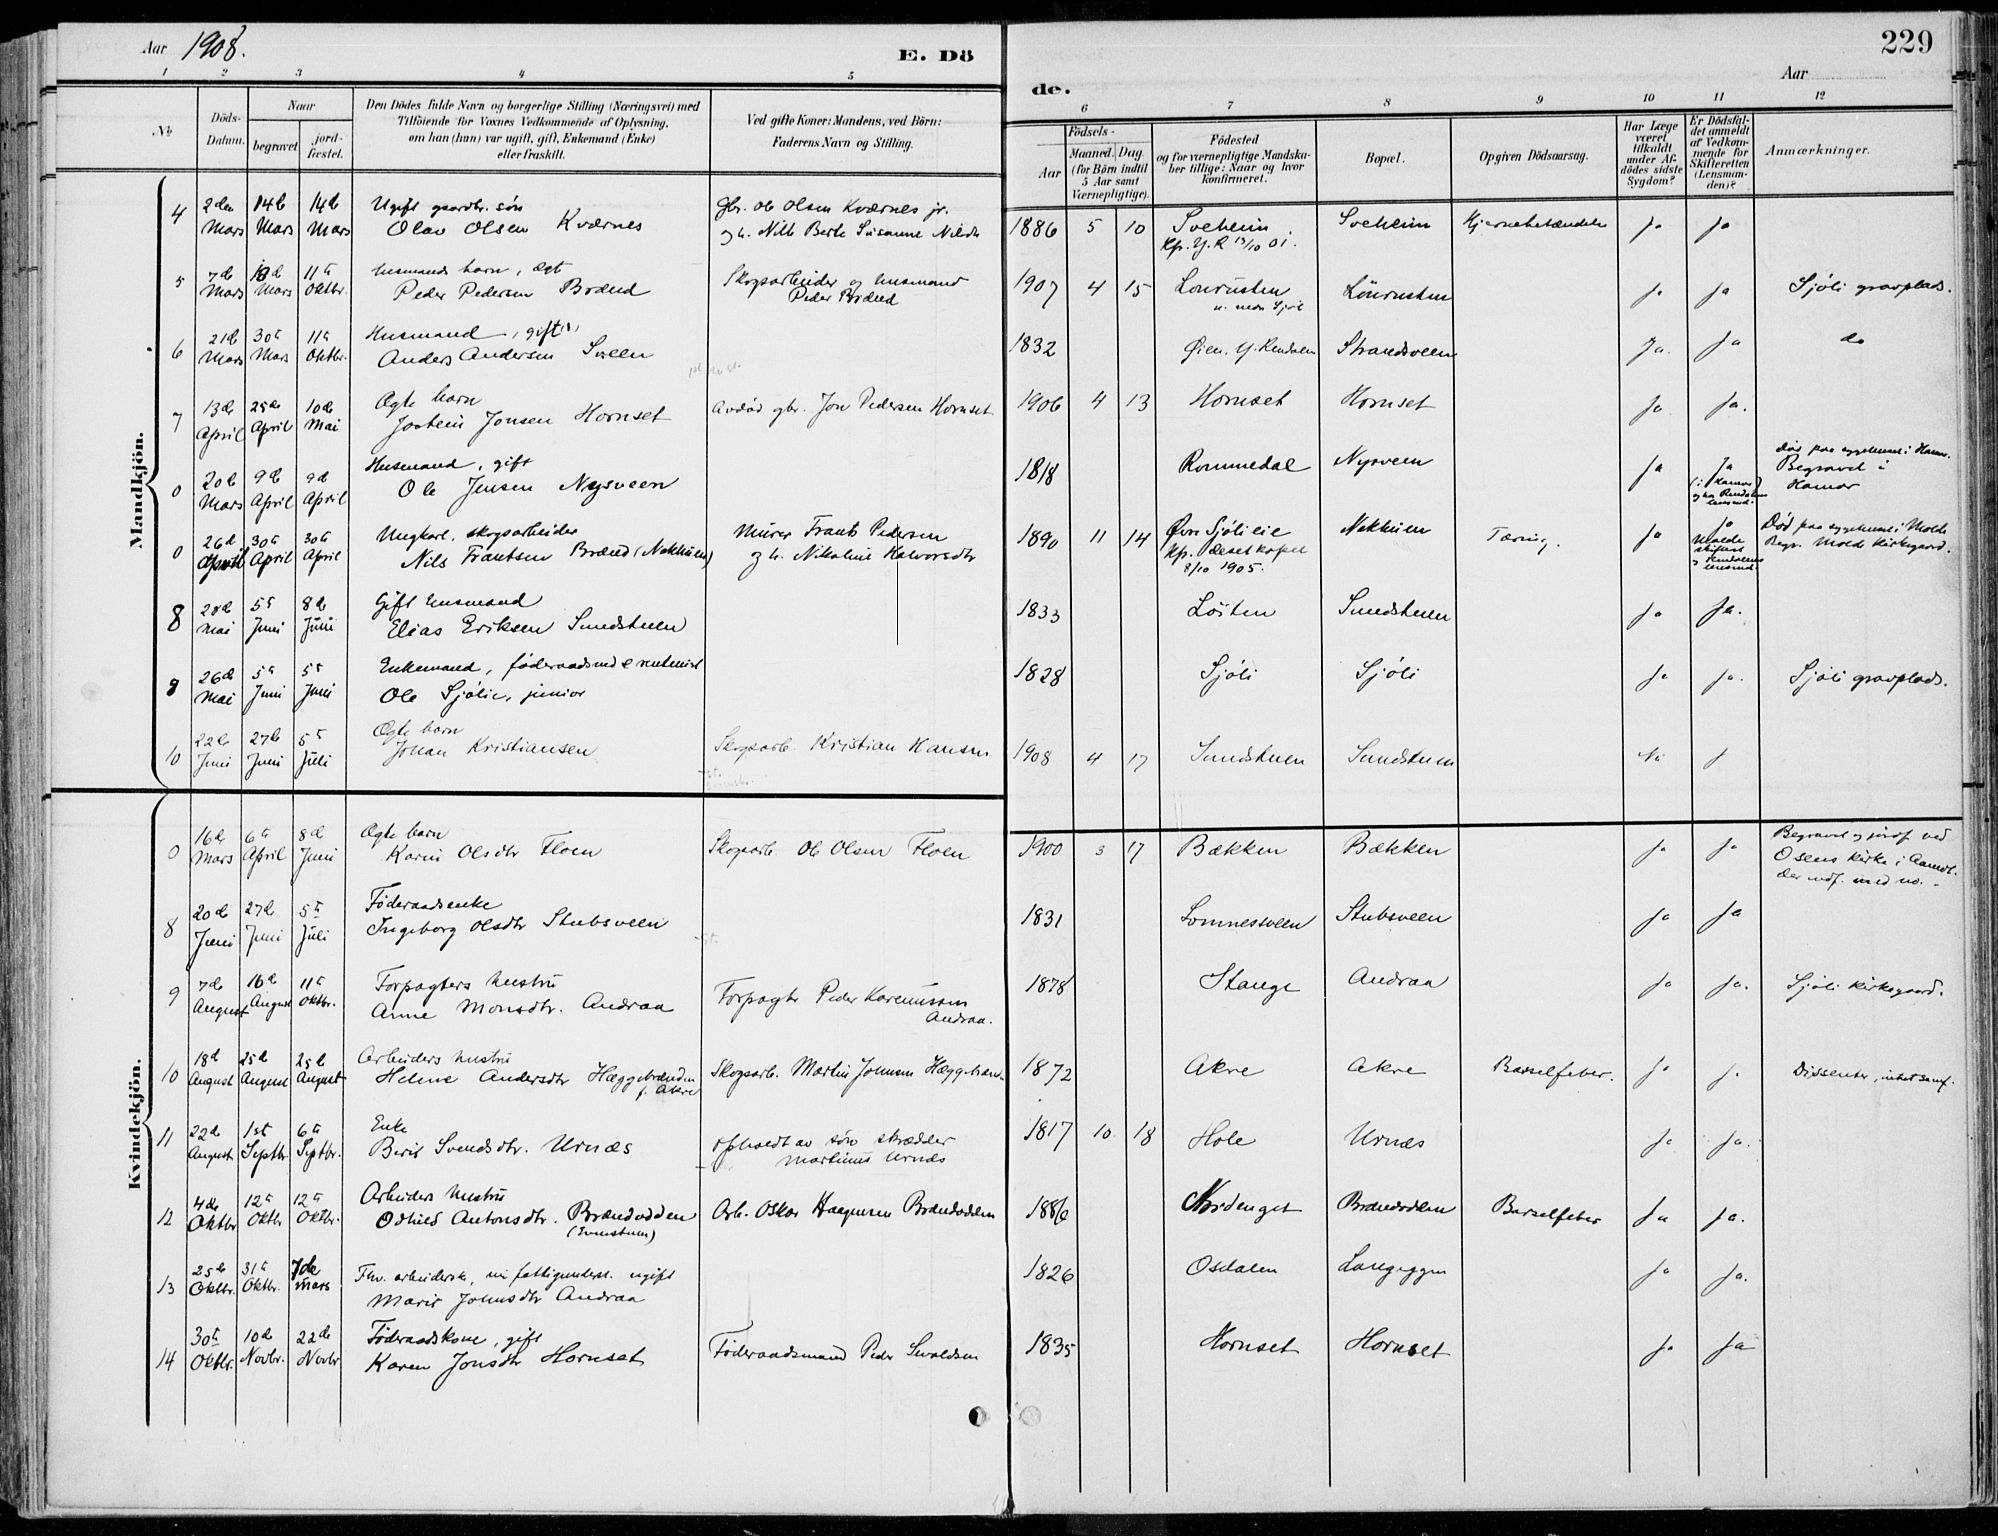 Aar 1908.
E. Dö
de.
229
Aar
1 2 3 4 5 6 7 8 9 10 11 12
No
Döds-
Datum.
Naar
begravet
jord-
fæstet.
Den Dödes fulde Navn og borgerlige Stilling (Næringsvei) med
Tilföiende for Voxnes Vedkommende af Oplysning,
om han (hun) var ugift, gift, Enkemand (Enke)
eller fraskilt.
Ved gifte Koner: Mandens, ved Börn:
Faderens Navn og Stilling.
Födsels-
Aar
Maaned. Dag.
(for Börn indtil
5 Aar samt
Værnepligtige).
Födested
og for værnepligtige Mandska-
ber tillige: Naar og hvor
konfirmeret.
Bopæl.
Opgiven Dödsaarsag.
Har Læge
været
tilkaldt
under Af-
dödes sidste
Sygdom?
Er Dödsfal-
det anmeldt
af Vedkom-
mende for
Skifteretten
(Lensman-
den)?
Anmærkninger.
Mandkjön.
4 2den Mars 14de Mars 14de Mars
Ugift gaardbr. søn
Olav Olsen Kværnes
gbr. Ole Olsen Kværnes jr.
1886 5 10 Sveheim Sveheim ja ja
Kp. Y. R 13/10 01.
5 7de Mars Mars 11te Oktbr.
Husmands barn, egt
Peder Pedersen Brænd
Skogsarbeider og husmand
Peder Brænd
1907 4 15 ja ja Sjøli gravplads.
6 21de Mars 30te Mars 11te Oktbr.
Husmand, gift
Anders Andersen Sveen
1832 Øien, Y. Rendalen Strandsveen Ja. ja do
7 13de April 25de April 10de Mai
Ægte barn
Jostein Jonsen Hornset
Avdød gbr. Jon Pedersen Hornset
1906 4 13 Hornset Hornset ja ja.
0 20de Mars 9de April 9de April
Husmand, gift
Ole Jensen Nysveen
1818 Rommedal Nysveen ja ja
Begravet i
Hamar
0 26de April 30te April 30te April
Ungkarl, skogsarbeider
Nils Frantsen Brænd (Nekkuen)
Murer Frants Pedersen
og h. Nikoline Halvorsdtr
1890 11 14 Øvre Sjöli eie Tæring. ja ja
8/10 1905.
Død paa sygehuset i Molde
Begr. Molde kirkegaard.
8 28de Mai 5te Juni 8de Juni
Gift husmand
Elias Eriksen Sundstuen
1833 Løiten Sundstuen ja ja.
9 26de Mai 5te Juni 5te Juni
Enkemand, føderaadsmd & rentenist
Ole Sjølie, junior
1828 Sjöli Sjöli ja ja. Sjøli gravplads.
10 22de Juni 27de Juni 5te Juli
Ægte barn
Johan Kristiansen
Skogsarb. Kristian Hansen
1908 4 17 Sundstuen Sundstuen Nei
Kvindekjön.
0 16de Mars 6te April 8de Juni
Ægte barn
Karin Olsdtr Floen
Skogsarb. Ole Olsen Floen
1900 3 17 Bækken Bækken ja ja
Begravet og jordf. ved
Osens kirke i Aamot.
8 20de Juni 27de Juni 5te Juli
Føderaadsenke
Ingeborg Olsdtr Stubsveen
1831 Lomnessveen Stubsveen ja ja
9 7de August 16de August 11te Oktbr.
Forpagters hustru
Anne Monsdtr. Andraa
Forpagter Peder Karenussen
Andraa.
1878 Stange Andraa ja ja. Sjøli kirkegaard.
10 18de August 25de August 25de August
Arbeiders hustru
Helene Andersdtr
f. Akre
Skogsarb. Martin Johnsen
1872 Akre Akre Barselfeber. ja ja.
11 22de August 1st Septbr. 6te Septbr.
Enke
Berit Svendsdtr. Urnæs
opholdt av søn skrædder
Martinus Urnæs
1817 10 18 Hole Urnæs ja ja.
12 4de Oktbr 12te Oktbr 12te Oktbr.
Arbeiders hustru
Odhild Antonsdtr. Brændvolden
(Evenstuen)
Arb. Oskar Haagensen Brændvolden
1886 Nordenget Brændvolden Barselfeber ja ja.
13 25de Oktbr. 31te Oktbr. 7de mars
Fhv. arbeiderske, nu fattigunderst. ugift
Marit Johnsdtr Andraa
1826 Osdalen Langeggen ja ja.
14 30te Oktbr. 10de Novbr. 22de Novbr
Føderaadskone, gift
Karen Jonsdtr Hornset
Føderaadsmand Peder Sivaldsen
1835 Hornset Hornset ja ja